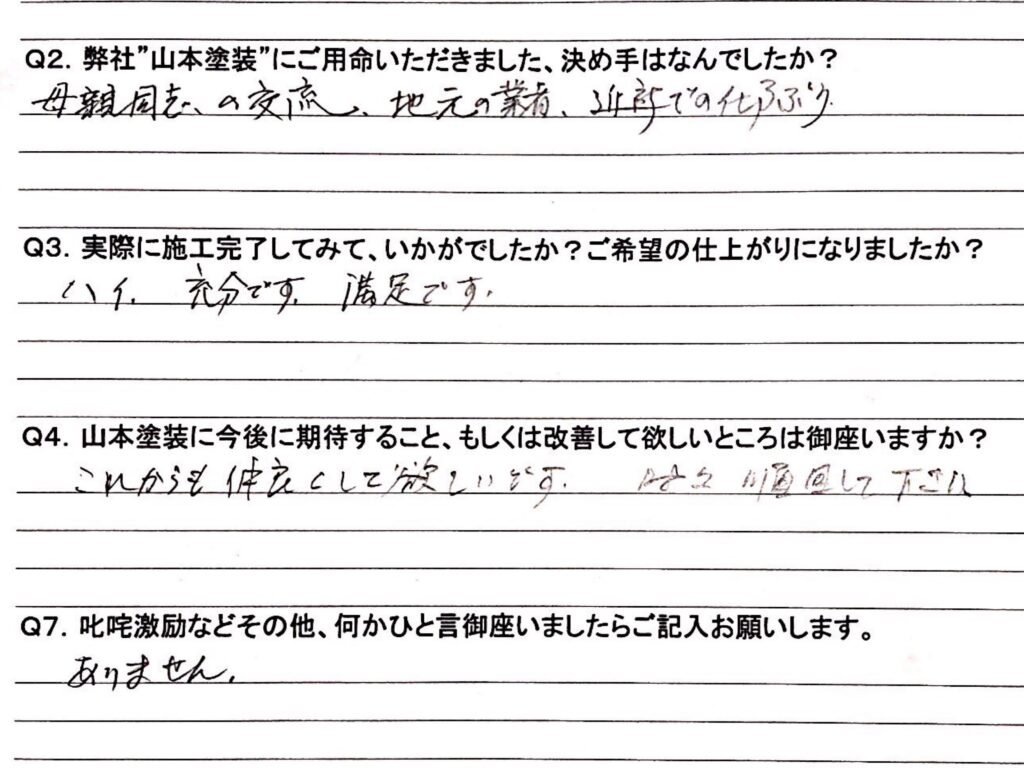 Q2. 弊社”山本塗装”にご用命いただきました、決め手はなんでしたか？
母親同志の交流、地元の業者、近所での仕事ぶり
Q3. 実際に施工完了してみて、いかがでしたか？ご希望の仕上がりになりましたか？
ハイ、充分です。満足です。
Q4. 山本塗装に今後に期待すること、もしくは改善して欲しいところは御座いますか？
これからも仲良くして欲しいです。時々回して下さい
Q7. 叱咤激励などその他、何かひと言御座いましたらご記入お願いします。
ありません。